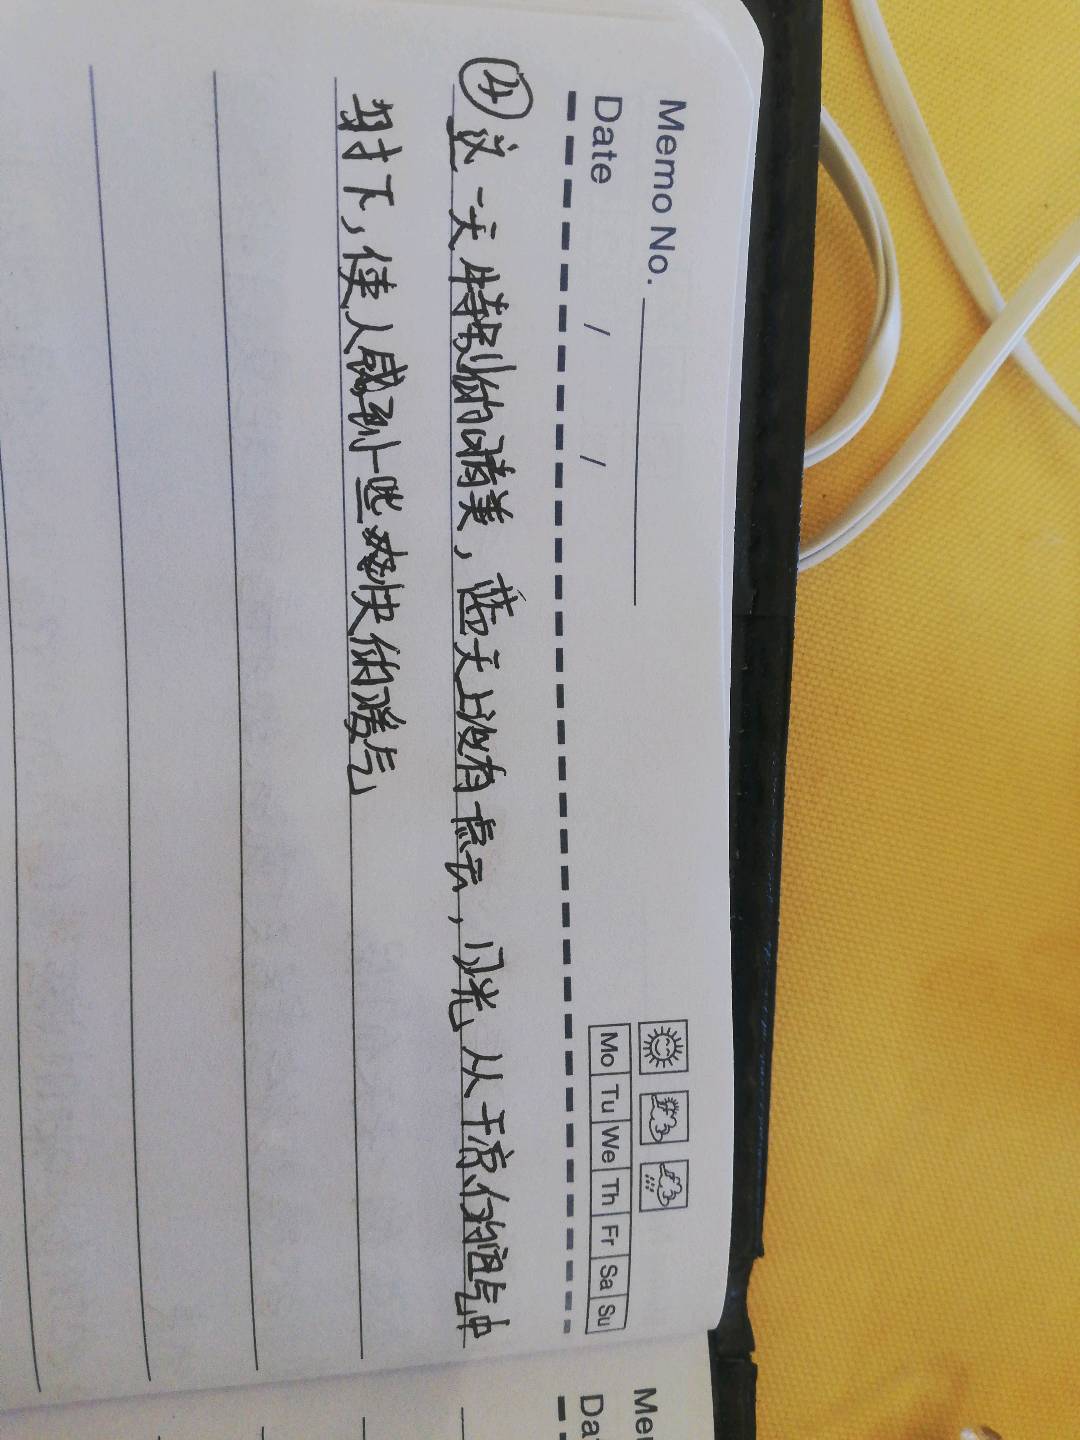 Memo No.
Date / /
Mo Tu We Th Fr Sa Su
④这一天特别的晴美,蓝天上没有一点云,日光从干凉的空气中
射下,使人感到一些爽快的暖气
Mem
Da